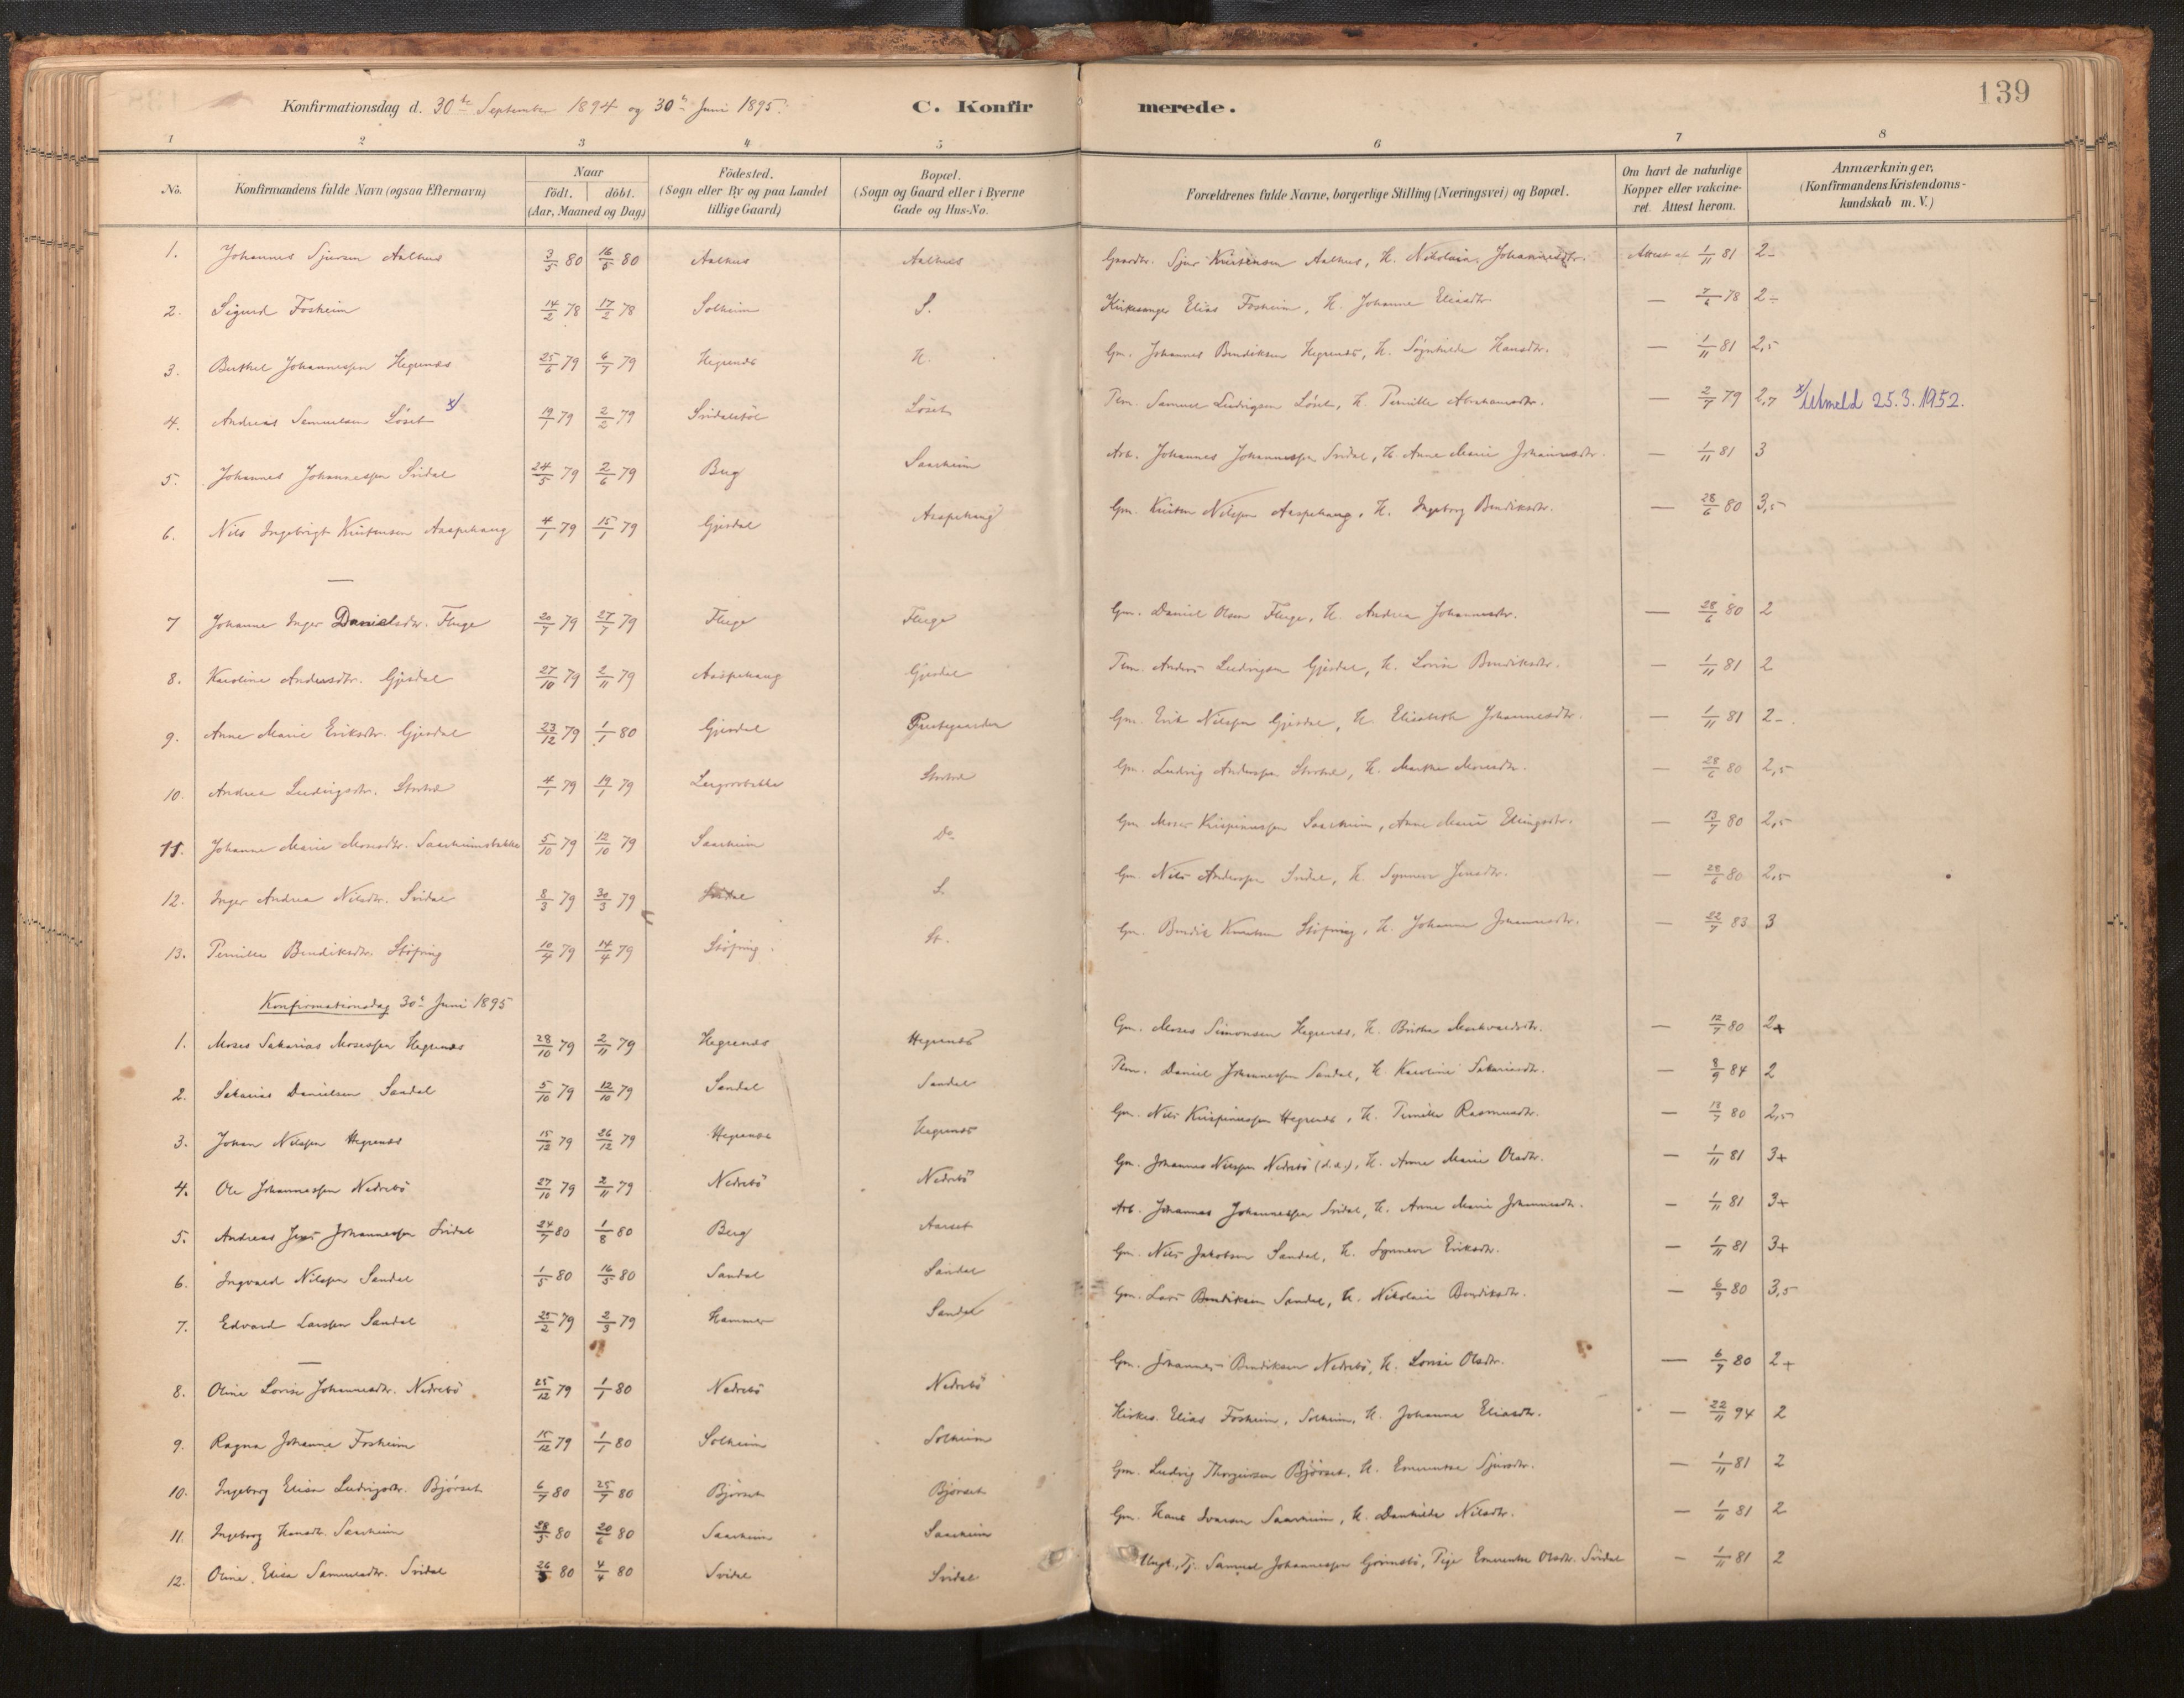 139
Konfirmationsdag d. 30te September 1894 og 30te Juni 1895.
C. Konfirmerede.
1 2 3 4 5 6 7 8
No. Konfirmandens fulde Navn (ogsaa Efternavn) Naar födt. döbt. (Aar, Maaned og Dag) Födested. (Sogn eller By og paa Landet tillige Gaard) Bopæl. (Sogn og Gaard eller i Byerne Gade og Hus-No. Forældrenes fulde Navne, borgerlige Stilling (Næringsvei) og Bopæl. Om havt de naturlige Kopper eller vakcineret. Attest herom. Anmærkninger. (Konfirmandens Kristendomskundskab m. V.)
1. Johannes Sjursen Aalhus 3/5 80 16/5 80 Aalhus Aalhus Gaardbr. Sjur Kristensen Aalhus, H. Nikolaia Johannesdtr. Attest af 1/11 81 2-
2. Sigurd Fosheim 14/2 78 17/2 78 Solheim S. Kirkesanger Elias Fosheim, H. Johanne Eliasdtr. — 7/6 78 2÷
3. Berthel Johannessen Hegrenæs 25/6 79 6/7 79 Hegrenæs H. Gm. Johannes Bendiksen Hegrenæs, H. Søgnhilde Hansdtr. — 1/11 81 2,5
4. Andreas Samuelsen Löset x/ 19/1 79 2/2 79 Svidalstöl Löset Pm. Samuel Ludvigsen Löset, H. Pernille Abrahamsdtr. — 2/7 79 2,7 x/ Utmeld 25.3.1952.
5. Johannes Johannessen Svidal 24/5 79 2/6 79 Berg Saarheim Arb. Johannes Johannessen Svidal, H. Anne Marie Johannesdtr. — 1/11 81 3
6. Nils Ingebrigt Kristensen Aaspehaug 4/1 79 15/1 79 Gjesdal Aaspehaug Gm. Kristen Nilssen Aaspehaug, H. Ingeborg Bendiksdtr. — 28/6 80 3,5
—
7 Johanne Inger Danielsdtr. Fluge 20/7 79 27/7 79 Fluge Fluge Gm. Daniel Olsen Fluge, H. Andrea Johannesdtr. — 28/6 80 2
8. Karoline Andersdtr. Gjesdal 27/10 79 2/11 79 Aaspehaug Gjesdal Pm. Anders Ludvigsen Gjesdal, H. Lovise Bendiksdtr. — 1/11 81 2
9. Anne Marie Eriksdtr. Gjesdal 23/12 79 1/1 80 Gjesdal Prestegaarden Gm. Erik Nilssen Gjesdal, H. Elisabeth Johannesdtr. — 1/11 81 2-.
10. Andrea Ludvigsdtr. 4/1 79 19/1 79 Gm. Ludvig Anderssen H. Marthe Mosesdtr. — 28/6 80 2,5
11. Johanne Marie Mosesdtr. Saarheimsbakke 5/10 79 12/10 79 Saarheim Do Gm. Moses Krispinussen Saarheim, Anne Marie Ellingsdtr. — 13/7 80 2,5
12. Inger Andrea Nilsdtr. Svidal 8/3 79 30/3 79 Svidal S. Gm. Nils Anderssen Svidal, H. Synneve Jensdtr. — 28/6 80 2,5
13. Pernille Bendiksdtr. Stöfring 10/4 79 14/4 79 Stöfring. St. Gm. Bendik Knutsen Stöfring, H. Johanne Johannesdtr. — 22/7 83 3
Konfirmationsdag 30te Juni 1895
1. Moses Sakarias Mosessen Hegrenæs 28/10 79 2/11 79 Hegrenæs Hegrenæs Gm. Moses Simonsen Hegrenæs, H. Brithe Markvardsdtr. — 12/7 80 2+
2. Sakarias Danielsen Sandal 5/10 79 12/10 79 Sandal Sandal Pm. Daniel Johannessen Sandal, H. Karoline Sakariasdtr. — 8/9 84 2
3. Johan Nilssen Hegrenæs 15/12 79 26/12 79 Hegrenæs Hegrenæs Gm. Nils Krispinussen Hegrenæs, H. Pernille Rasmusdtr. — 13/7 80 2,5
4. Ole Johannessen Nedrebö 27/10 79 2/11 79 Nedrebö Nedrebö Gm. Johannes Nilssen Nedrebö (d.a.), H. Anne Marie Olsdtr. — 1/11 81 3+
5. Andreas Jens Johannessen Svidal 24/7 80 1/8 80 Berg Aarset Arb. Johannes Johannessen Svidal, H. Anne Marie Johannesdtr. — 1/11 81 3+
6. Ingvald Nilssen Sandal 1/5 80 16/5 80 Sandal Sandal Gm. Nils Jakobsen Sandal, H. Synneve Eriksdtr. — 1/11 81 3+
7. Edvard Larssen Sandal 25/2 79 2/3 79 Hammer Sandal Gm. Lars Bendiksen Sandal, H. Nikolaie Bendiksdtr. — 6/9 80 3,5
—
8. Oline Lovise Johannesdtr. Nedrebö 25/12 79 1/1 80 Nedrebö Nedrebö Gm. Johannes Bendiksen Nedrebö, H. Lovise Olsdtr. — 6/7 80 2+
9. Ragna Johanne Fosheim 15/12 79 1/1 80 Solheim Solheim Kirkes. Elias Fosheim, Solheim, H. Johanne Eliasdtr. — 22/11 94 2
10. Ingeborg Elisa Ludvigsdtr. Bjørset 6/7 80 25/7 80 Bjørset Bjørset Gm. Ludvig Thorgeirsen Bjørset, H. Emerentse Sjursdtr. — 1/11 81 2
11. Ingeborg Hansdtr. Saarheim 28/5 80 20/6 80 Saarheim Saarheim Gm. Hans Ivarsen Saarheim, H. Danhilde Nilsdtr. — 1/11 81 2
12. Oline Elisa Samuelsdtr. Svidal 26/3 80 4/4 80 Svidal Svidal Ungk., Tj. Samuel Johannessen Grimsbö, Pige Emerentse Olsdtr. Svidal — 1/11 81 2